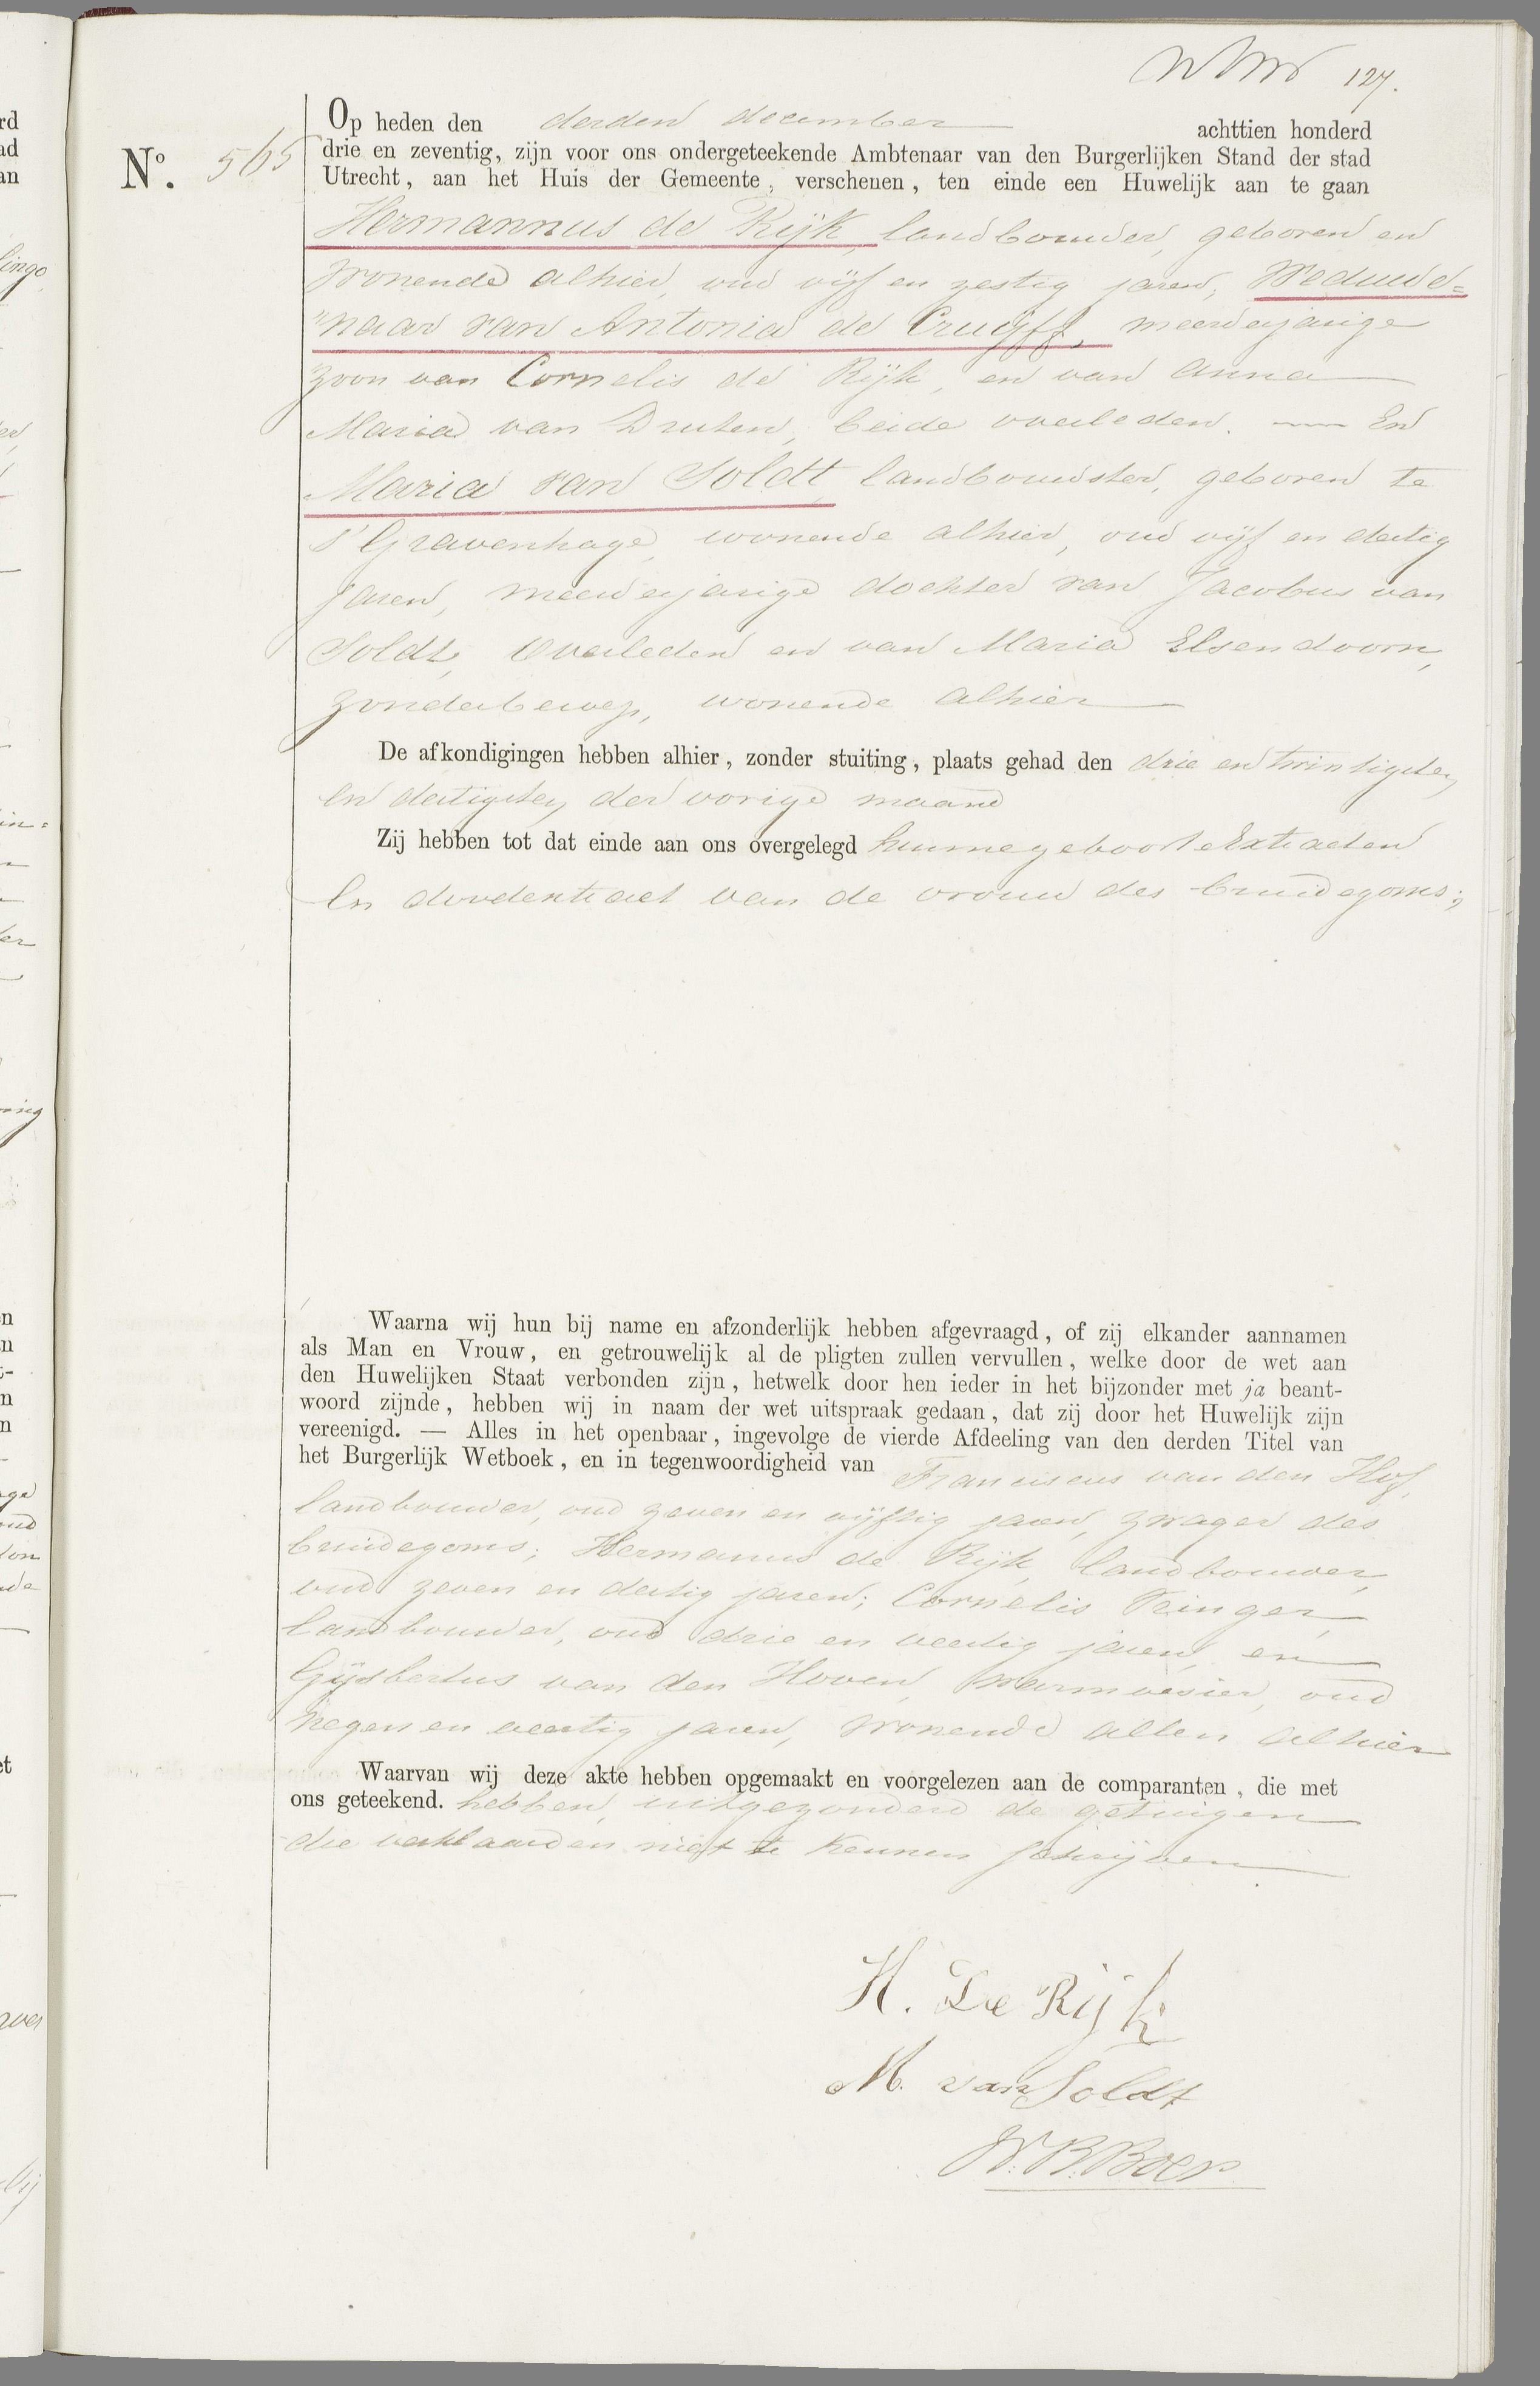 127.
Op heden den derden december achttien honderd
N°. 565 drie en zeventig, zijn voor ons ondergeteekende Ambtenaar van den Burgerlijken Stand der stad
Utrecht, aan het Huis der Gemeente, verschenen, ten einde een Huwelijk aan te gaan
Hermannus de Rijk, landbouwer, geboren en
wonende alhier, oud vijf en zestig jaren, Weduwe=
"naar van Antonia de Cruijff, meerderjarige
zoon van Cornelis de Rijk, en van Anna
Maria van Druten, beide overleden. — En
Maria van Soldt, landbouwster, geboren te
s'Gravenhage, wonende alhier, oud vijf en dertig
jaren, meerderjarige dochter van Jacobus van
Soldt, overleden en van Maria Elsendoorn,
zonder beroep, wonende alhier
De afkondigingen hebben alhier, zonder stuiting, plaats gehad den drie en twintigsten
en dertigsten der vorige maand
Zij hebben tot dat einde aan ons overgelegd hunne geboorteextracten
en doodextract van de vrouw des bruidegoms;
Waarna wij hun bij name en afzonderlijk hebben afgevraagd, of zij elkander aannamen
als Man en Vrouw, en getrouwelijk al de pligten zullen vervullen, welke door de wet aan
den Huwelijken Staat verbonden zijn, hetwelk door hen ieder in het bijzonder met ja beant-
woord zijnde, hebben wij in naam der wet uitspraak gedaan, dat zij door het Huwelijk zijn
vereenigd. — Alles in het openbaar, ingevolge de vierde Afdeeling van den derden Titel van
het Burgerlijk Wetboek, en in tegenwoordigheid van Franciscus van den Hof,
landbouwer, oud zeven en vijftig jaren, zwager des
bruidegoms; Hermanus de Rijk, landbouwer,
oud zeven en dertig jaren; Cornelis Peinger,
landbouwer, oud drie en veertig jaren, en
Gijsbertus van den Hoven, warmoesier, oud
negen en veertig jaren, wonende allen alhier
Waarvan wij deze akte hebben opgemaakt en voorgelezen aan de comparanten, die met
ons geteekend. hebben, uitgezonderd de getuigen
die verklaarden niet te kennen schrijven
H. De Rijk
M. van Soldt
W. B. Boer